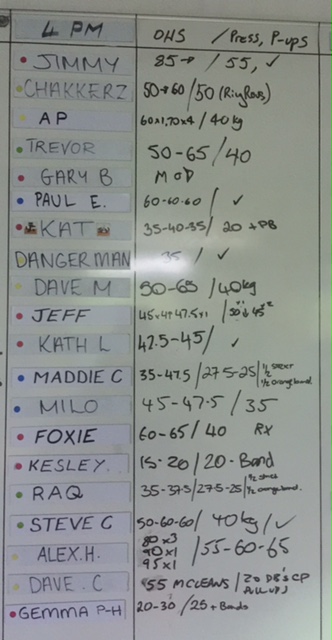 4 PM OHS / Press, P-ups
JIMMY 85 → / 55, ✓
CHAKKERZ 50→60 / 50 (Ring Rows)
AP 60x1,70x4 / 40kg
TREVOR 50-65 / 40
GARY B MOD
PAUL E. 60-60-60 / ✓
KAT 35-40-35 / 20 + PB
DANGERMAN 35 / ✓
DAVE M 50-65 / 40kg
JEFF 45x4 47.5x1 /
KATH L 42.5-45 / ✓
MADDIE C 35-47.5 / 27.5-25 / 1/2 orange band
MILO 45-47.5 / 35
FOXIE 60-65 / 40 RX
KESLEY. 15-20 / 20-Band
RAQ 35-37.5 / 27.5-25 / 1/2 orange band.
STEVE C 50-60-60 / 40kg / ✓
ALEX.H. 80x3 90x1 95x1 / 55-60-65
DAVE.C 55 MCLEANS / 20 DB'S CP PULL UPS
GEMMA P-H 20-30 / 25 + Bands